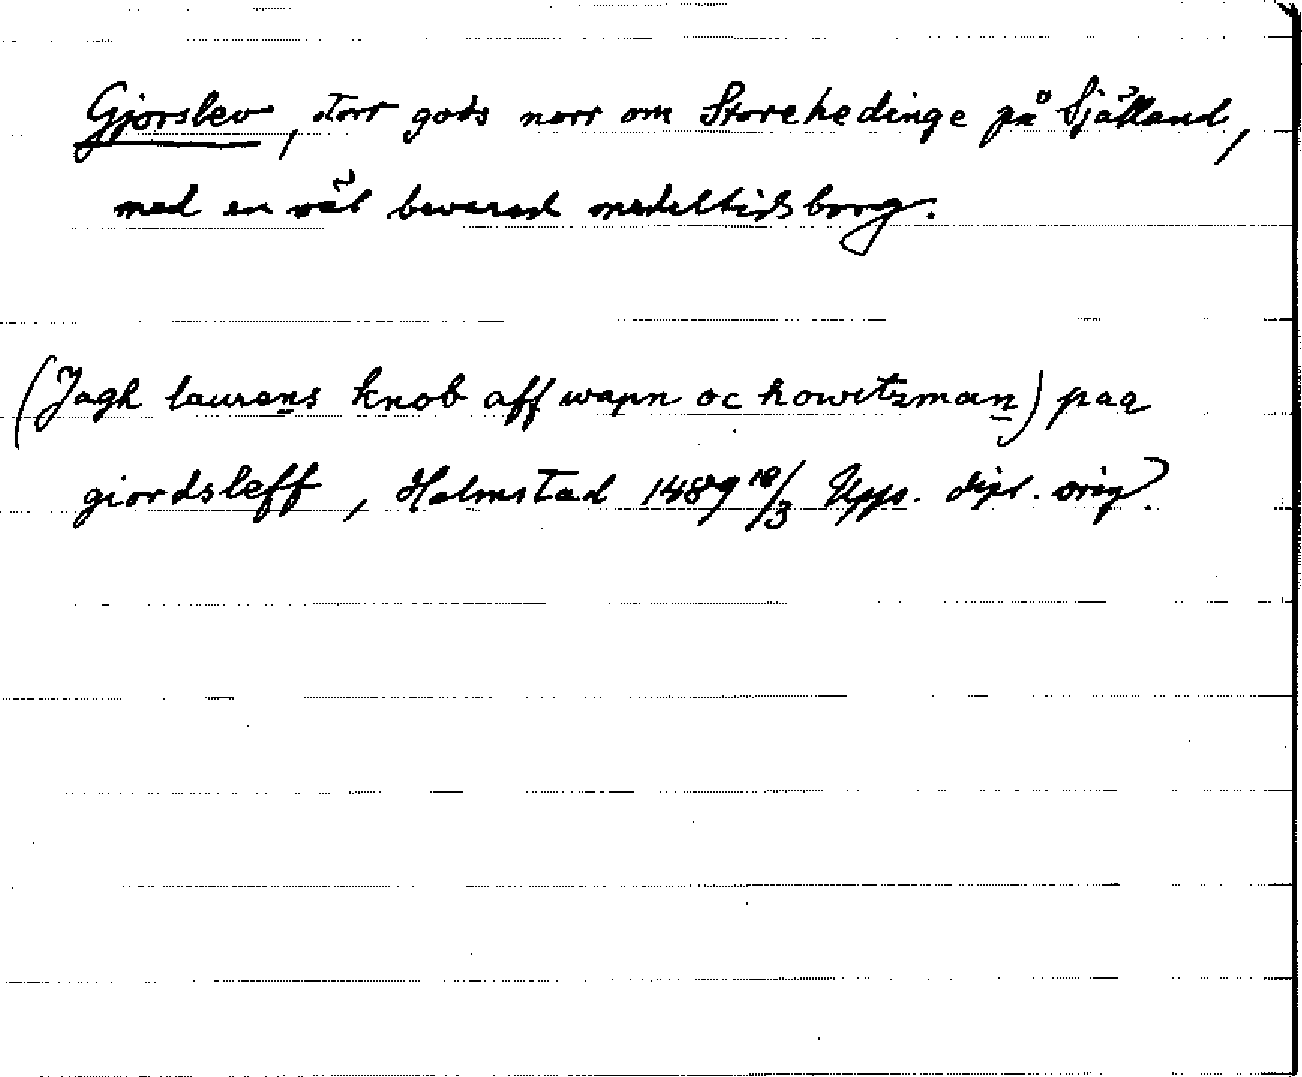 Gjorslev, stort gods norr om Storehedinge på Själland,
med en väl bevarad medeltidsborg.
(Jagh laurens knob aff wapn oc howitzman) paa
giordsleff, Halmstad 1489 10/3 Upps. dipl. orig.